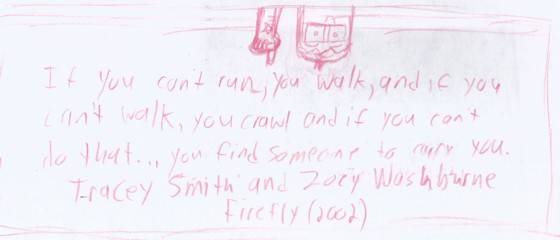 If you can't run, you walk, and if you
can't walk, you crawl and if you can't
do that... you find someone to carry you.
Tracey Smith and Zoey Washburne
Firefly (2002)